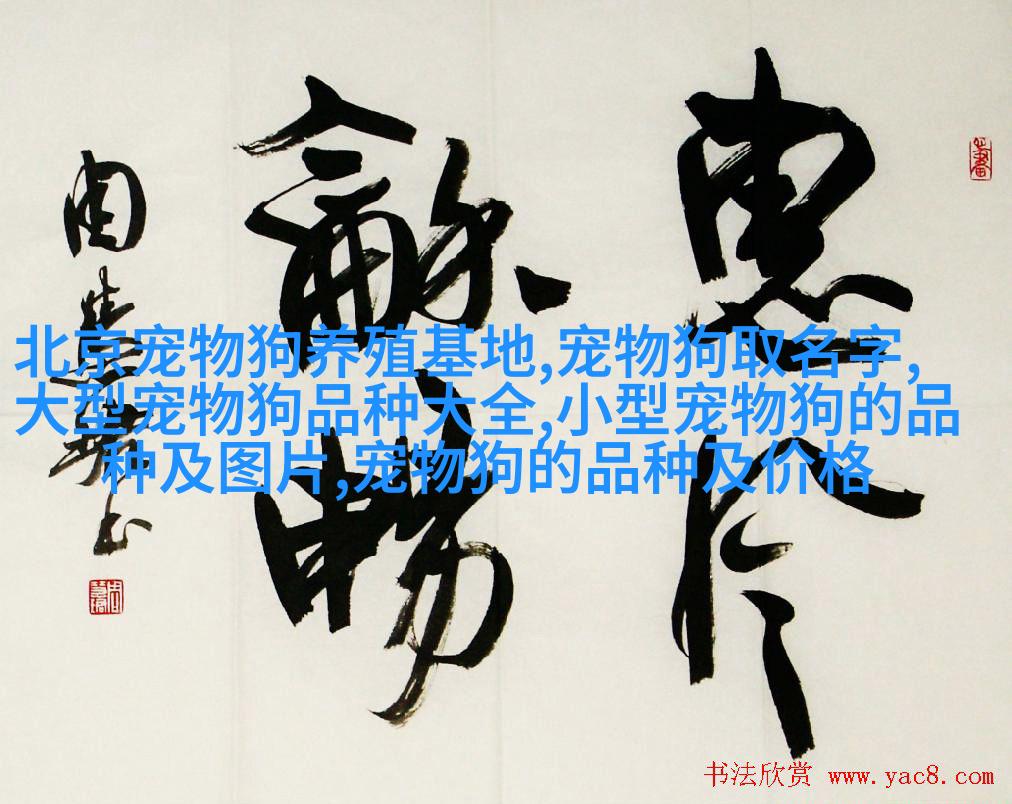 惠风
龢暢
周慧珺书
北京宠物狗养殖基地,宠物狗取名字,
大型宠物狗品种大全,小型宠物狗的品
种及图片,宠物狗的品种及价格
书法欣赏 www.yac8.com